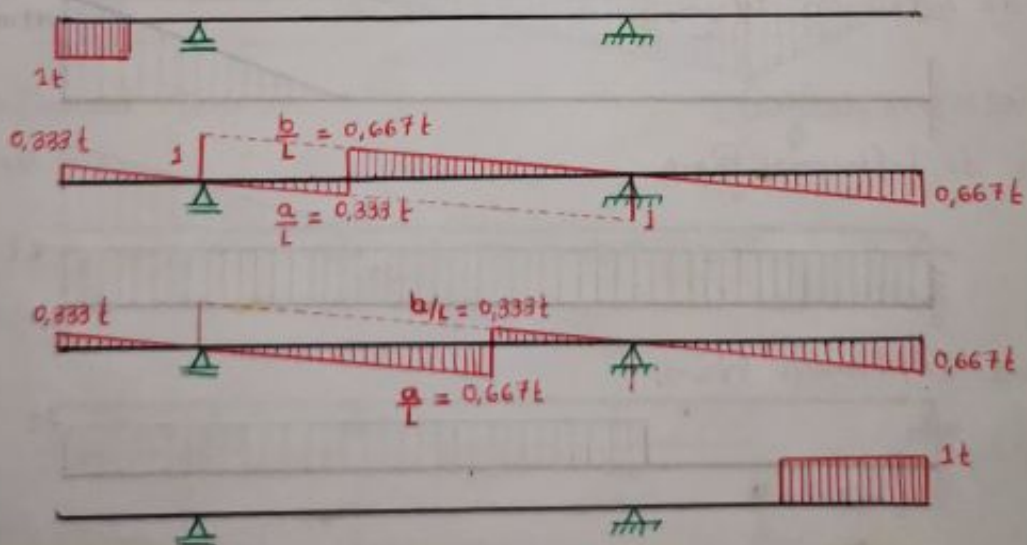 1t
0,333 t
1
b/L = 0,667 t
a/L = 0,333 t
1
0,667 t
0,333 t
b/L = 0,333 t
a/L = 0,667 t
0,667 t
1t